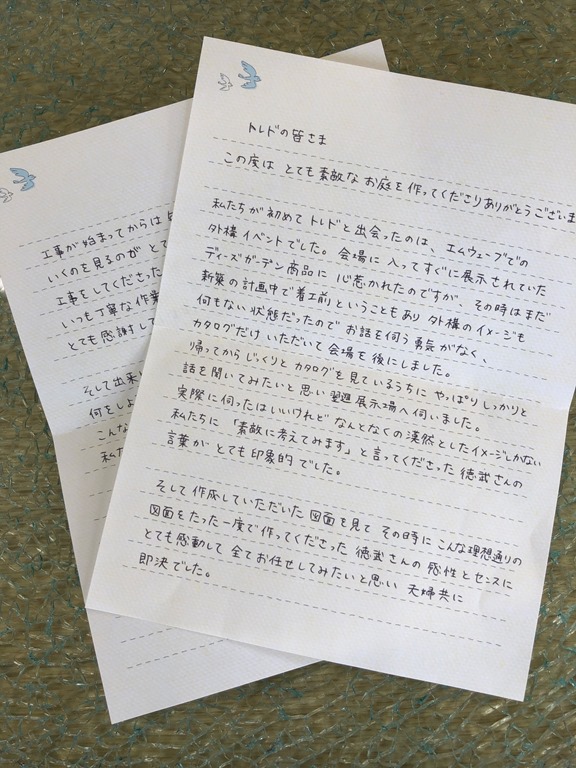 トレドの皆さま
この度は とても素敵な お庭を作ってくださりありがとうございま
私たちが初めて トレドと出会ったのは、エムウェーブでの
外構イベントでした。会場に入ってすぐに展示されていた
ディーズガーデン商品に 心惹かれたのですが、その時はまだ
新築の計画中で着工前ということもあり 外構のイメージも
何もない状態だったので お話を伺う勇気がなく、
カタログだけ いただいて会場を後にしました。
帰ってからじっくりと カタログを見ているうちに やっぱり しっかりと
話を聞いてみたいと思い 翌週展示場へ伺いました。
実際に伺ったはいいけれど なんとなくの漠然としたイメージしかない
私たちに「素敵に考えてみます」と言ってくださった 徳武さんの
言葉が とても印象的でした。
そして作成していただいた図面を見て その時に こんな理想通りの
図面をたった一度で作ってくださった 徳武さんの 感性とセンスに
とても感動して 全てお任せしてみたいと思い 夫婦共に
即決でした。
工事が始まってからは
いくのを見るのが とて
工事をしてくださった
いつも丁寧な作業
とても感謝して
そして出来
何をしよ
こんな
私た